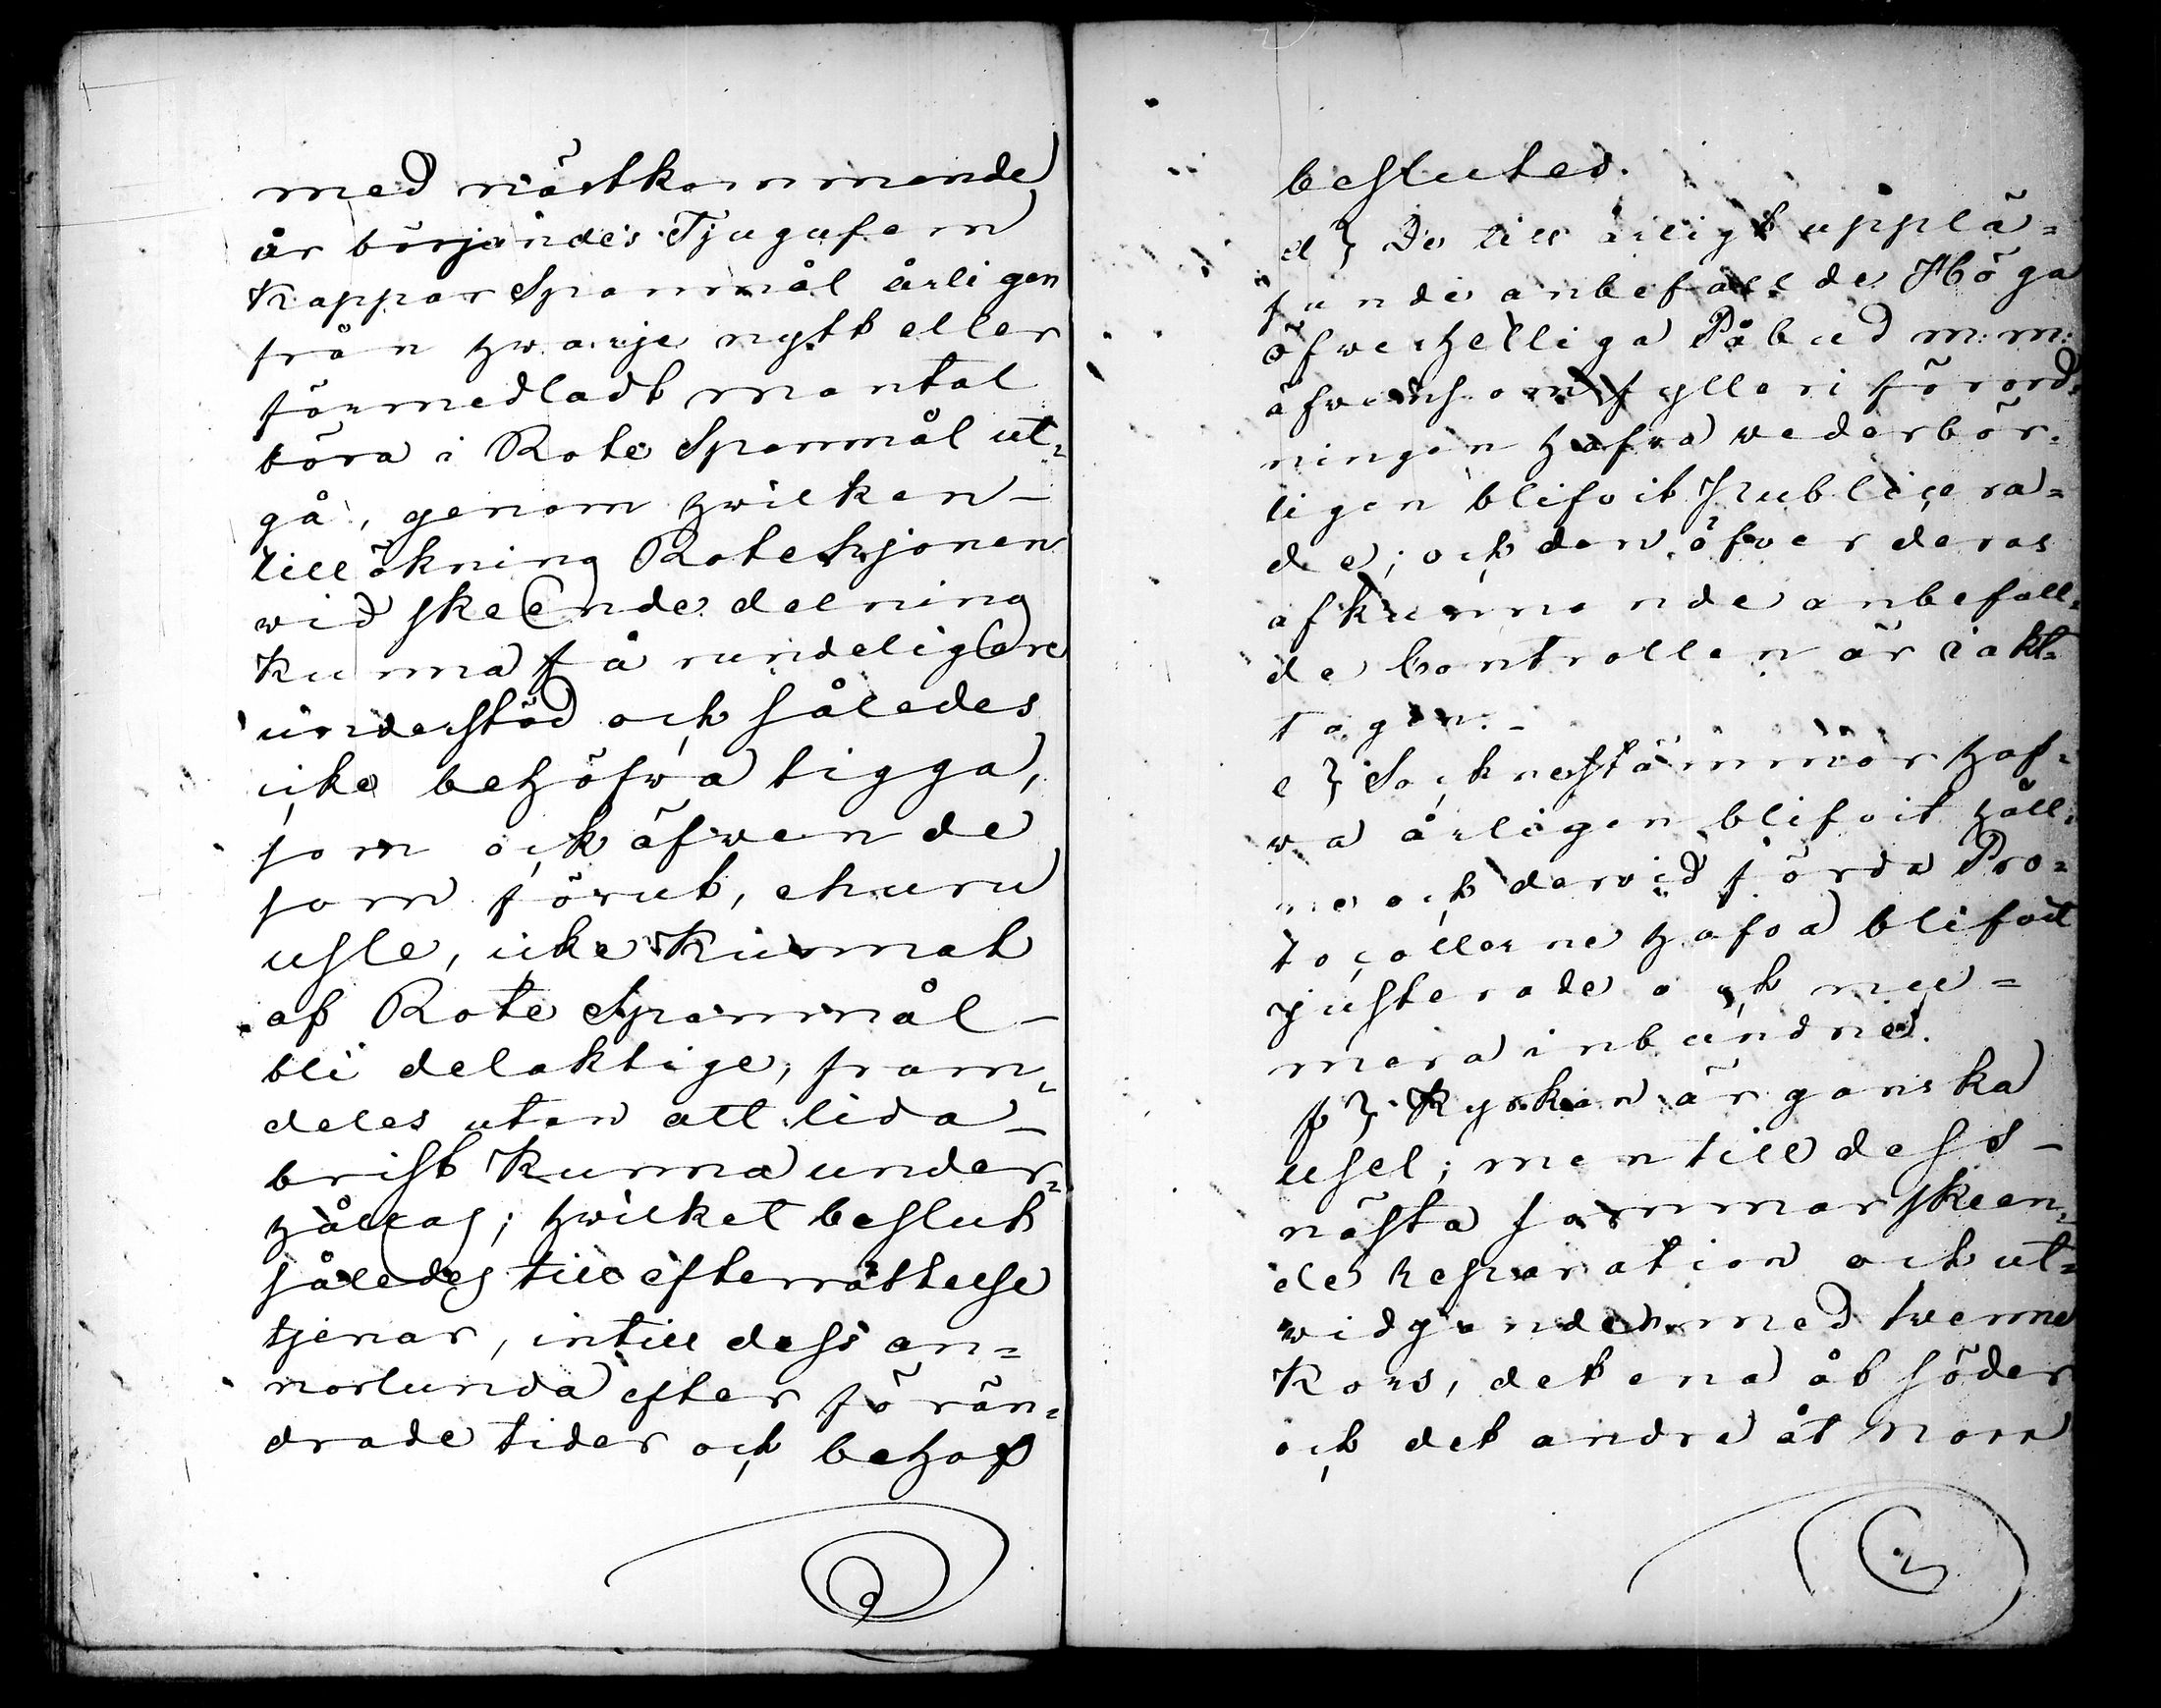 med nästkommande
år börjandes Tjugufem
Kappar Spannmål årligen
från hvarje nytt eller
förmedladt mantal
böra i Rote Spannmål ut-
gå, genom hvilken
tillökning Rotehjonen
wid skeende delning
kunna få rundeligare
understöd och således
icke behöfwa tigga,
som ock äfwen de
som förut, ehuru
usle, icke kunnat
af Rote Spannmål
bli delaktige, fram-
deles utan att lida
brist kunna under-
hållas; hwilket beslut
således till efterrättelse
tjenar, intill dess an=
norlunda efter förän=
drade tider och behof
beslutes.
d) De till årligt upplä=
sande anbefallde Höga
öfwerhetliga Påbud m:m:
äfwensom fylleri förord-
ningen hafwa wederbör-
ligen blifvit publicera=
de; och den öfver deras
afkunnande anbefall-
de Controllen är iakt-
tagen.
e) Socknestämmor haf-
wa årligen blifvit håll-
ne och dervid förda Pro=
tocollerne hafva blifvit
justerade och nu=
mera inbundne.
f) Kyrkan är ganska
usel; men till dess
nästa sommar skeen-
de reparation och ut=
widgande med twenne
Kors, det ena åt söder
och det andra åt norr